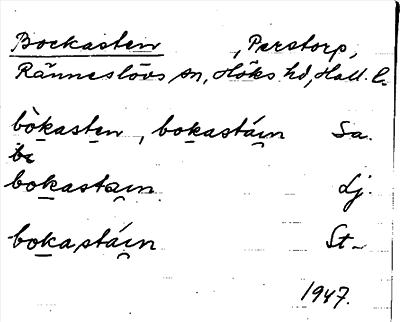 Bockasten , Perstorp,
Ränneslövs sn, Höks hd, Hall. l.
bòkasten , bokastáin Sa.
bokastain Lj.
bokastáin St-
1947.